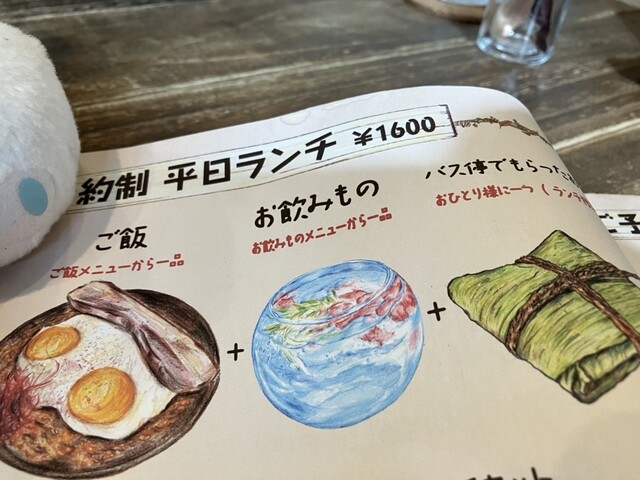 約制 平日ランチ ¥1600
ご飯
ご飯メニューから一品
お飲みもの
お飲みものメニューから一品
バス停でもらった
おひとり様に一つ (ラン
+
+
ご子
ット